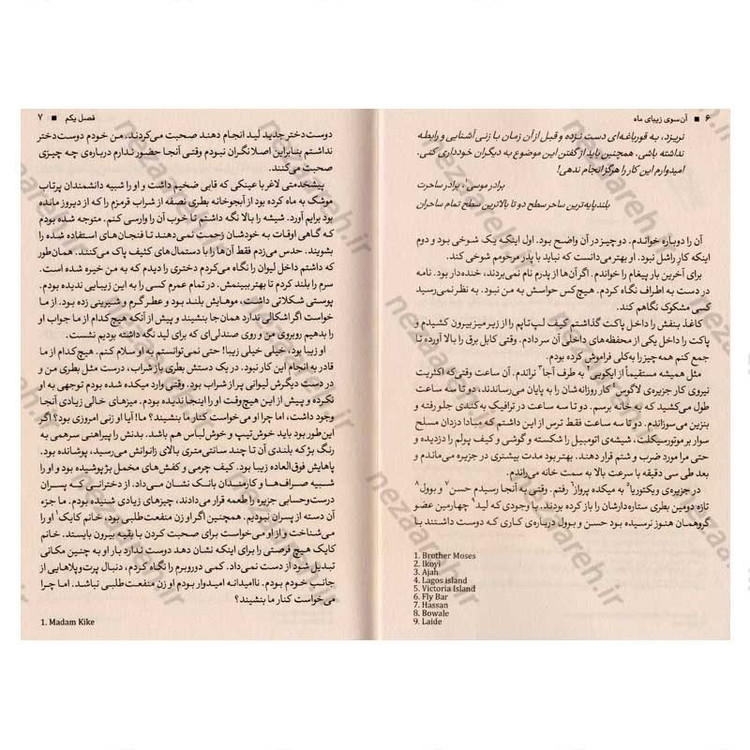 ۶ ■ آن‌سوی زیبای ماه
نریزد، به قورباغه‌ای دست نزده و قبل از آن زمان با زنی آشنایی و رابطه
نداشته باشی. همچنین باید از گفتن این موضوع به دیگران خودداری کنی.
امیدوارم این کار را هرگز انجام ندهی!
برادر موسی¹، برادر ساحرت
بلندپایه‌ترین ساحر سطح دو تا بالاترین سطح تمام ساحران
آن را دوباره خواندم. دو چیز در آن واضح بود. اول اینکه یک شوخی بود و دوم
اینکه کار راشل نبود. او بهتر می‌دانست که نباید با پدر مرحومم شوخی کند.
برای آخرین بار پیغام را خواندم. اگر آن‌ها از پدرم نام نمی‌بردند، خنده‌دار بود. نامه
در دست به اطراف نگاه کردم. هیچ‌کس حواسش به من نبود. به نظر نمی‌رسید
کسی مشکوک نگاهم کند.
کاغذ بنفش را داخل پاکت گذاشتم کیف لپ‌تاپم را از زیر میز بیرون کشیدم و
پاکت را داخل یکی از محفظه‌های داخلی آن سر دادم. وقتی کابل برق را بالا آورد تا
جمع کنم همه‌چیز را به‌کلی فراموش کرده بودم.
مثل همیشه مستقیماً از ایکویی² به طرف آجا³ نراندم. آن ساعت وقتی‌که اکثریت
نیروی کار جزیره‌ی لاگوس⁴ کار روزانه‌شان را به پایان می‌رساندند، دو تا سه ساعت
طول می‌کشید که به خانه برسم. دو تا سه ساعت در ترافیک به‌کندی جلو رفته و
بنزین می‌سوزاندم. دو تا سه ساعت فقط ترس از این داشتم که مبادا دزدان مسلح
سوار بر موتورسیکلت، شیشه‌ی اتومبیل را شکسته و گوشی و کیف پولم را دزدیده و
حتی مرا مورد ضرب و شتم قرار دهند. بهتر بود مدت بیشتری در جزیره می‌ماندم و
بعد طی سی دقیقه با سرعت بالا به سمت خانه می‌راندم.
در جزیره‌ی ویکتوریا⁵ به میکده پرواز⁶ رفتم. وقتی به آنجا رسیدم حسن⁷ و بوول⁸
تازه دومین بطری ستاره‌دارشان را باز کرده بودند. با وجودی که لید⁹ چهارمین عضو
گروهمان هنوز نرسیده بود حسن و بوول درباره‌ی کاری که دوست داشتند با
1. Brother Moses
2. Ikoyi
3. Ajah
4. Lagos island
5. Victoria Island
6. Fly Bar
7. Hassan
8. Bowale
9. Laide
فصل یکم ■ ۷
دوست‌دختر جدید لید انجام دهند صحبت می‌کردند. من خودم دوست‌دختر
نداشتم بنابراین اصلا نگران نبودم وقتی آنجا حضور ندارم درباره‌ی چه چیزی
صحبت می‌کنند.
پیشخدمتی لاغر با عینکی که قابی ضخیم داشت و او را شبیه دانشمندان پرتاب
موشک به ماه کرده بود از آبجوخانه بطری نصفه از شراب قرمزم را که از دیروز مانده
بود برایم آورد. شیشه را بالا نگه داشتم تا خوب آن را وارسی کنم. متوجه شده بودم
که گاهی اوقات به خودشان زحمت نمی‌دهند تا فنجان‌های استفاده شده را
بشویند. حدس می‌زدم فقط آن‌ها را با دستمال‌های کثیف پاک می‌کنند. همان‌طور
که داشتم داخل لیوان را نگاه می‌کردم دختری را دیدم که به من خیره شده است.
سرم را بلند کردم تا بهتر ببینمش. در تمام عمرم کسی را به این زیبایی ندیده بودم.
پوستی شکلاتی داشت، موهایش بلند بود و عطر گرم و شیرینی زده بود. از ما
خواست اگر اشکالی ندارد همان‌جا بنشیند و پیش از آنکه هیچ‌کدام از ما جواب او
را بدهیم روبروی من و روی صندلی‌ای که برای لید نگه داشته بودیم نشست.
او زیبا بود، خیلی خیلی زیبا! حتی نمی‌توانستم به او سلام کنم. هیچ‌کدام از ما
قادر به انجام این کار نبود. در یک دستش بطری باز شراب، درست مثل بطری من و
در دست دیگرش لیوانی پر از شراب بود. وقتی وارد میکده شده بودم توجهی به او
نکرده و پیش از این هیچ‌وقت او را اینجا ندیده بودم. میزهای خالی زیادی آنجا
وجود داشت، اما چرا او می‌خواست کنار ما بنشیند؟ ما! آیا او زنی امروزی بود؟ اگر
این‌طور بود باید خوش‌تیپ و خوش‌لباس هم باشد. بدنش را پیراهنی سرهمی به
رنگ بژ که بلندی آن تا چند سانتی‌متری بالای زانوانش می‌رسید، پوشانده بود.
پاهایش فوق‌العاده زیبا بود. کیف چرمی و کفش‌های مخمل بژ پوشیده بود و او را
شبیه صراف‌ها و کارمندان بانک نشان می‌داد. از دخترانی که پسران
درست‌وحسابی جزیره را طعمه قرار می‌دادند، چیزهای زیادی شنیده بودم. ما جزء
آن دسته از پسران نبودیم. همچنین اگر او زن منفعت‌طلبی بود، خانم کایک¹ او را
می‌شناخت و از او می‌خواست برای صحبت کردن با بقیه بیرون بایستد. خانم
کایک هیچ فرصتی را برای اینکه نشان دهد دوست ندارد بار او به چنین مکانی
تبدیل شود از دست نمی‌داد. کمی دوروبرم را نگاه کردم، دنبال پرت‌وپلاهایی از
جانب خودم بودم. ناامیدانه امیدوار بودم او زن منفعت‌طلبی نباشد. اما چرا
می‌خواست کنار ما بنشیند؟
1. Madam Kike
nezaareh.ir